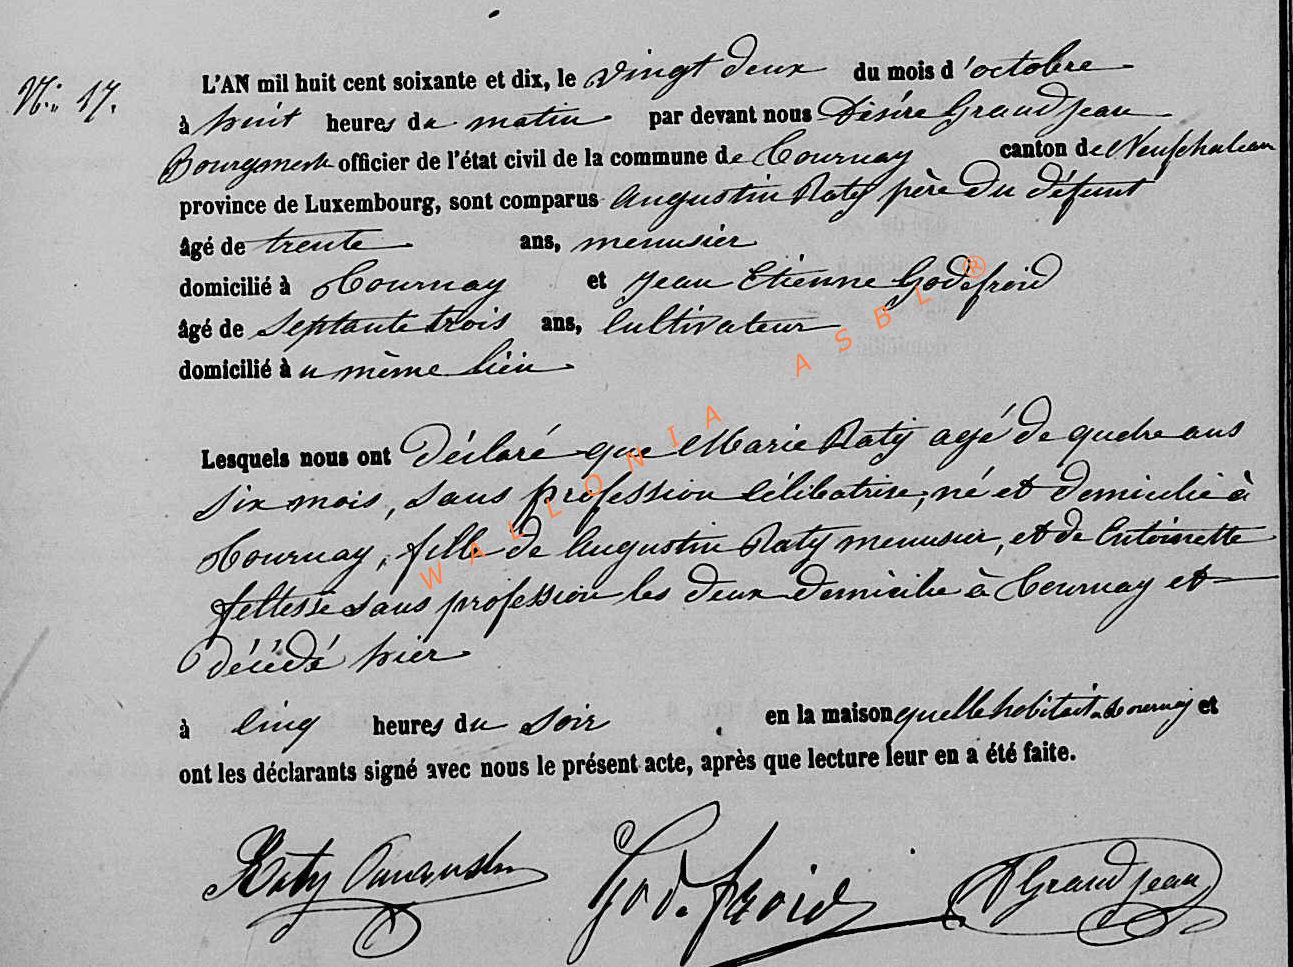 N° 17.
L'AN mil huit cent soixante et dix, le vingt deux du mois d'octobre
à huit heures du matin par devant nous Désiré Grandjean
Bourgmestr officier de l'état civil de la commune de Tournay canton de Neufchateau
province de Luxembourg, sont comparus Augustin Raty père du défunt
âgé de trente ans, menusier
domicilié à Tournay et Jean Etienne Godefroid
âgé de Septante trois ans, Cultivateur
domicilié à u même lieu
Lesquels nous ont déclaré que Marie Raty agé de quatre ans
six mois, sans profession célibatrise, né et domicilié à
Tournay, fille de Augustin Raty menusier, et de Antoinette
sans profession les deux domicilié à Tournay et
décédé hier
à cinq heures du soir en la maison quelle habitait a Tournay et
ont les déclarants signé avec nous le présent acte, après que lecture leur en a été faite.
Raty Augustin Godefroid D Grandjean
WALLONIA ASBL ®